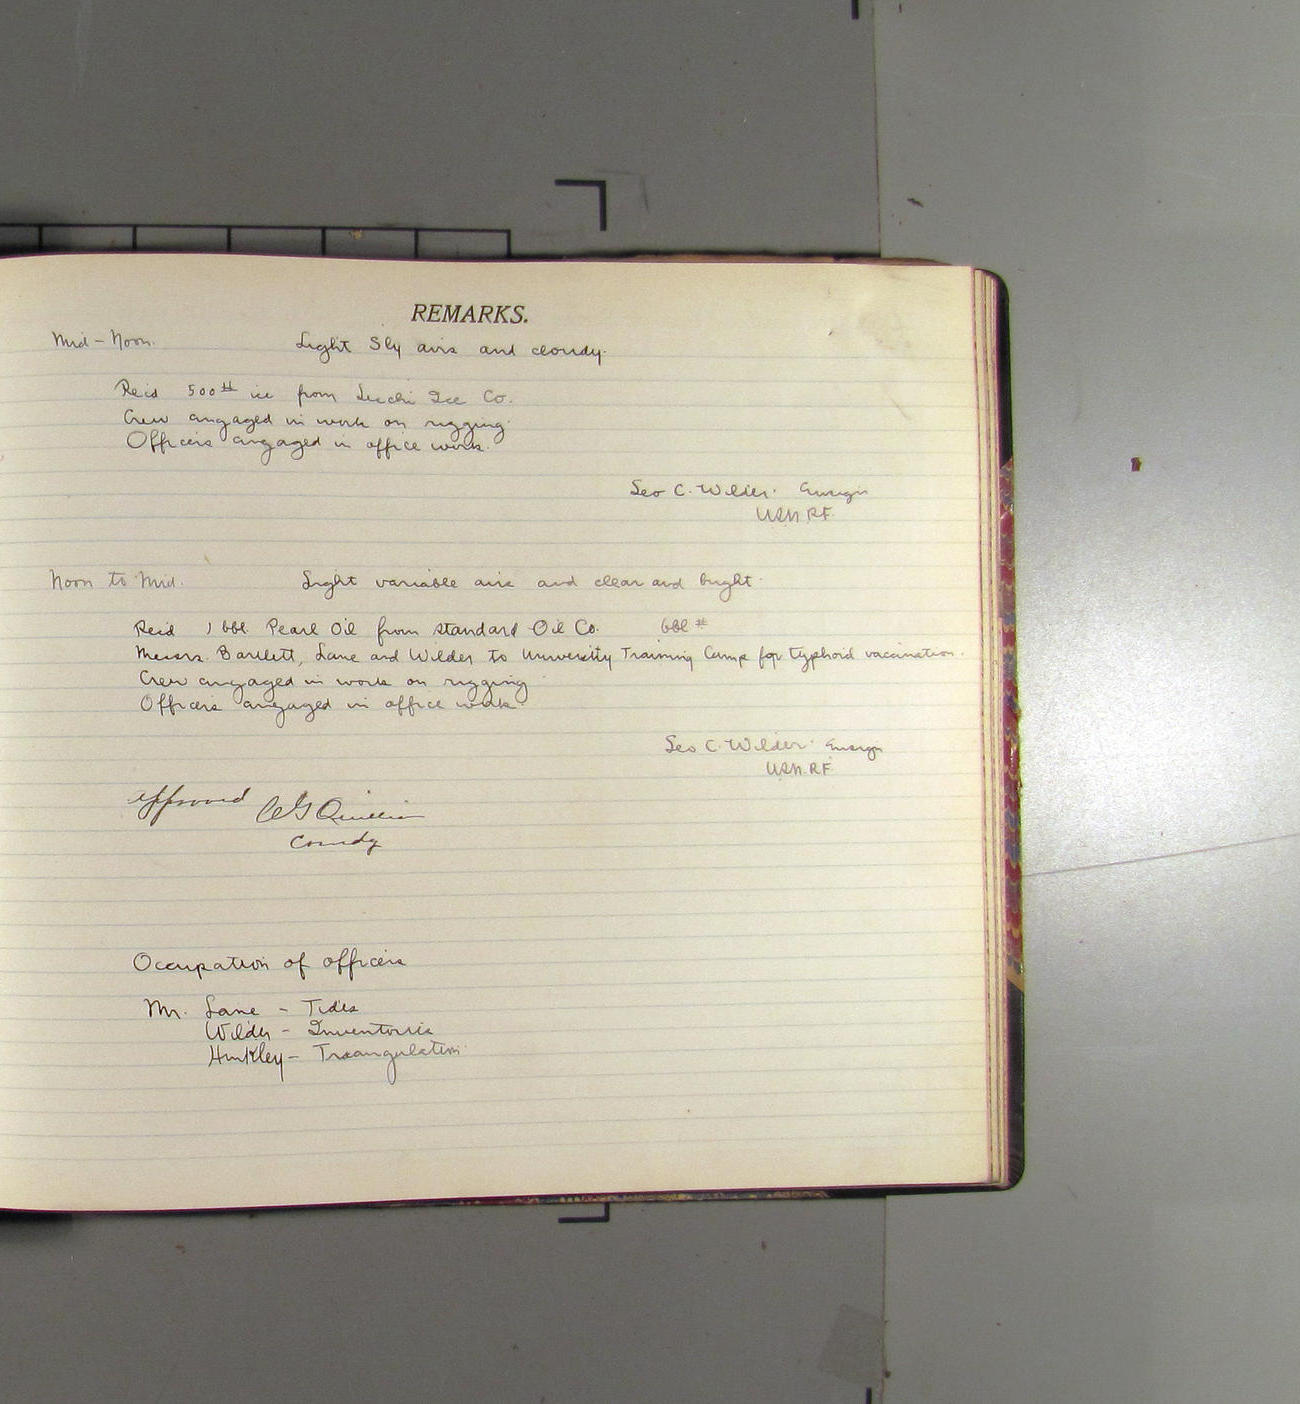 REMARKS.
Mid - Noon. Light Sly airs and cloudy.
Rec'd 500# ice from Ice Co.
Crew engaged in work on rigging.
Officers engaged in office work.
Leo C. Wilder. Ensign
USN.RF.
Noon to Mid. Light variable airs and clear and bright.
Rec'd 1 bbl. Pearl Oil from Standard Oil Co. bbl #
Messrs. Bartlett, Lane and Wilder to University Training Camp for typhoid vaccination.
Crew engaged in work on rigging
Officers engaged in office work.
Leo C. Wilder. Ensign
USN.RF.
Approved
Comdg
Occupation of officers
Mr. Lane - Tides
Wilder - Inventories
Hinkley - Triangulation